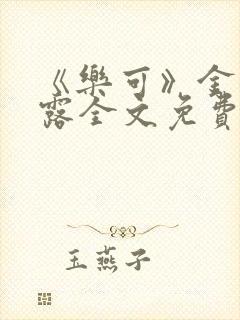 《樂可》金
露全文免費
玉燕子